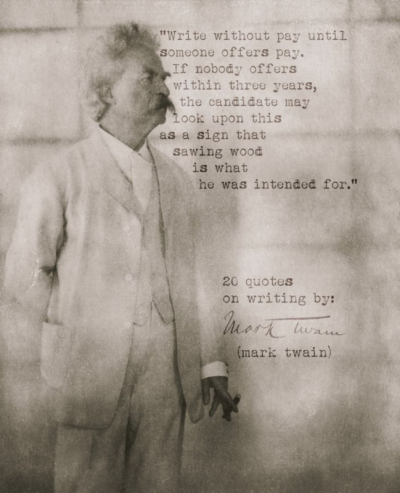 "Write without pay until
someone offers pay.
If nobody offers
within three years,
the candidate may
look upon this
as a sign that
sawing wood
is what
he was intended for."
20 quotes
on writing by:
Mark Twain
(mark twain)